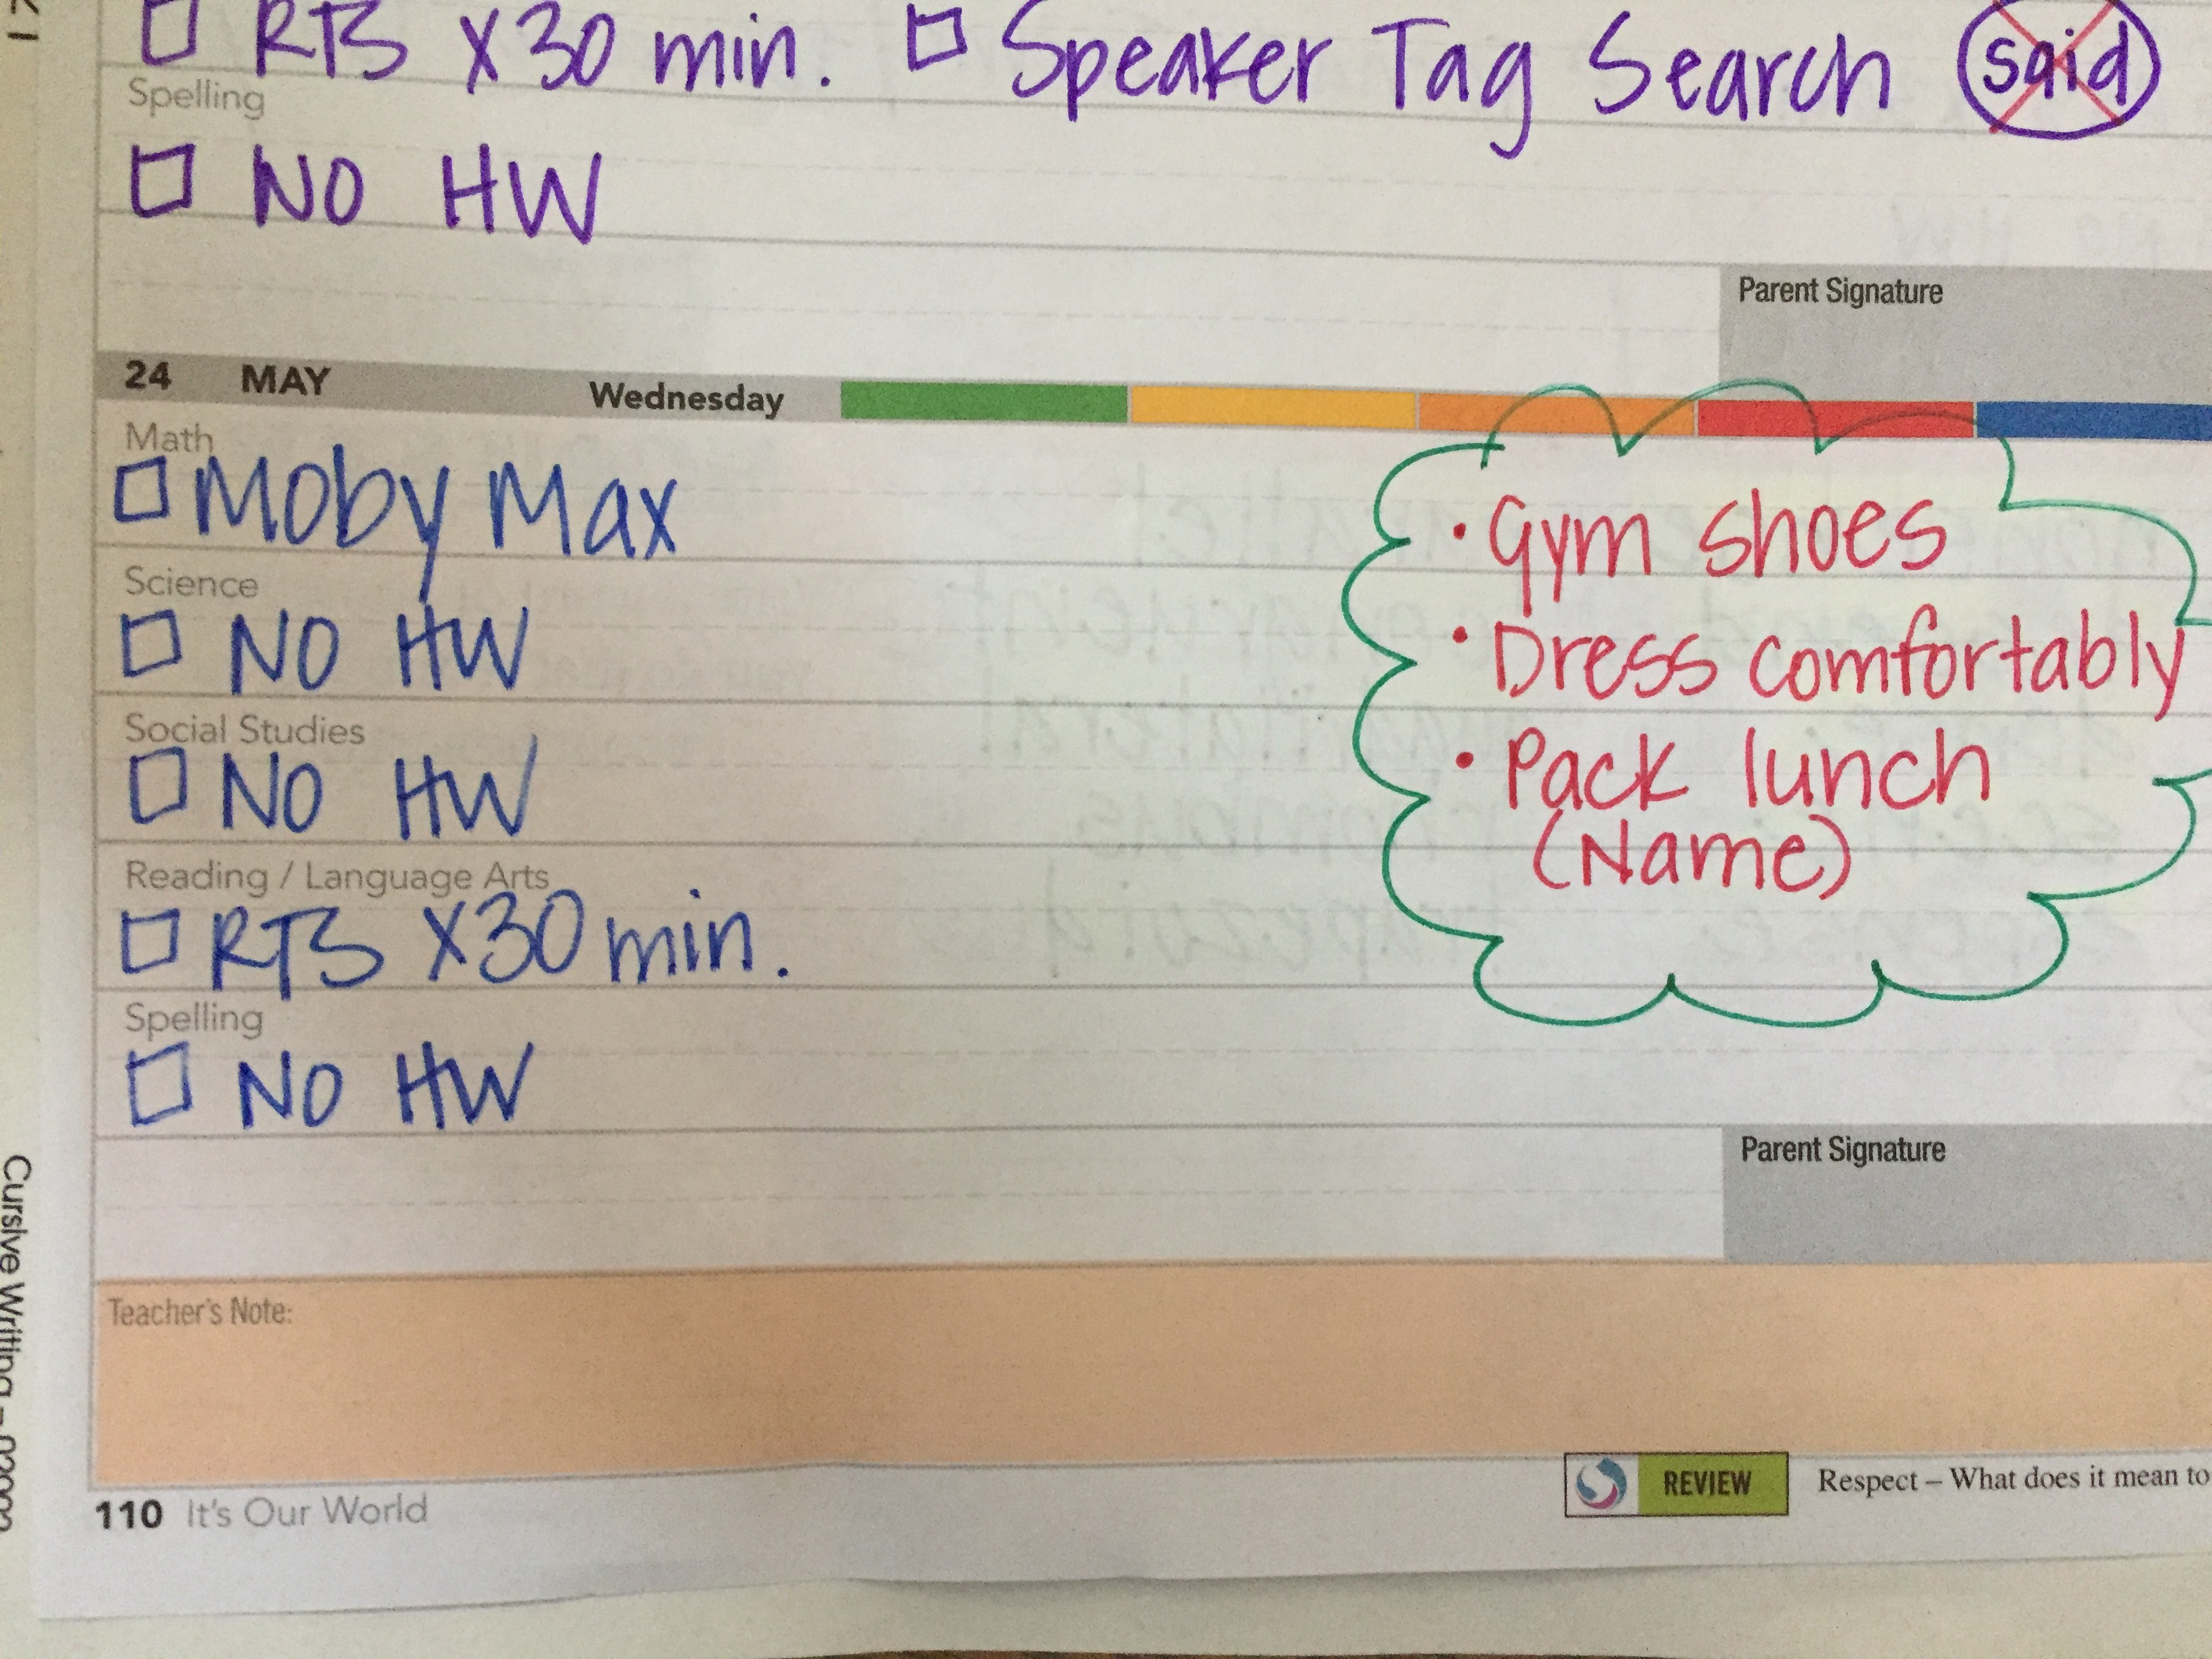 RTB X30 min. Speaker Tag Search said
Spelling
NO HW
Parent Signature
24 MAY Wednesday
Math
Moby Max
Science
NO HW
Social Studies
NO HW
Reading / Language Arts
RTB X30 min.
Spelling
NO HW
• Gym shoes
• Dress comfortably
• Pack lunch
(Name)
Parent Signature
Teacher's Note:
110 It's Our World
REVIEW Respect – What does it mean to
Cursive Writing –